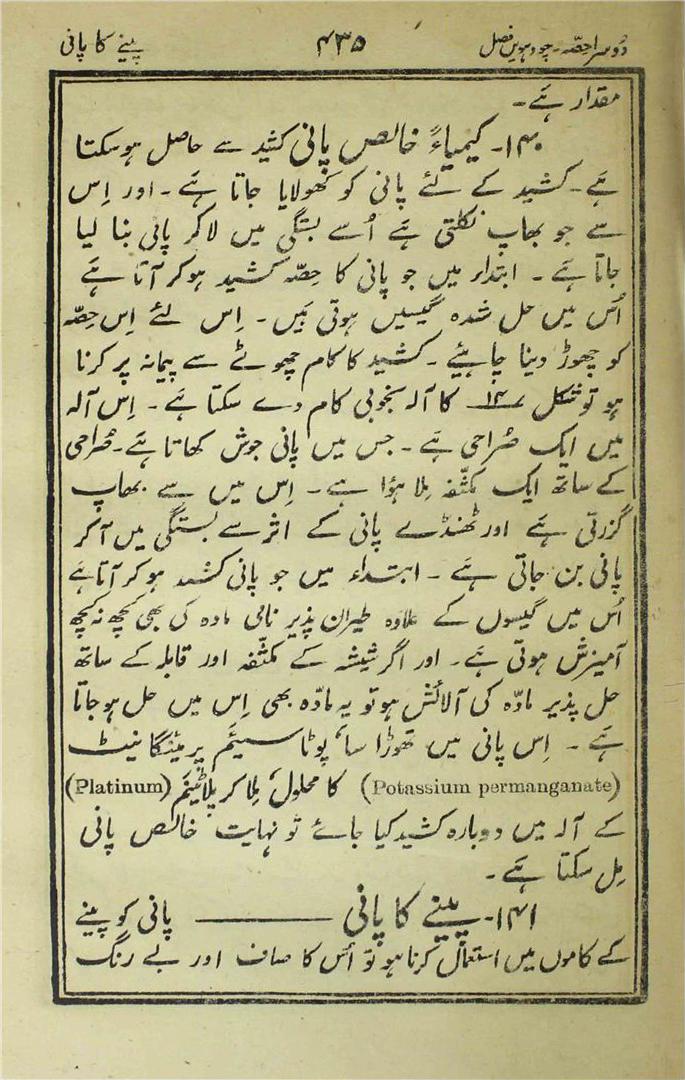 دُوسرا حِصّہ۔ چودہویں فصل ۴۳۵ پینے کا پانی
مقدار ہے۔
۱۴۰۔ کیمیاءً خالص پانی کشید سے حاصل ہوسکتا
ہے۔ کشید کے لئے پانی کو کھولایا جاتا ہے۔ اور اِس
سے جو بھاپ نکلتی ہے اُسے بستگی میں لاکر پانی بنا لیا
جاتا ہے۔ ابتداء میں جو پانی کا حِصّہ کشید ہوکر آتا ہے
اُس میں حل شدہ گیسیں ہوتی ہَیں۔ اِس لئے اِس حِصّہ
کو چھوڑ دینا چاہئیے۔ کشید کا کام چھوٹے سے پیمانہ پر کرنا
ہو تو شکل ۱۴۷ کا آلہ بخوبی کام دے سکتا ہے۔ اِس آلہ
میں ایک صُراحی ہے۔ جس میں پانی جوش کھاتا ہے۔ صُراحی
کے ساتھ ایک مکثّفہ مِلا ہؤا ہے۔ اِس میں سے بھاپ
گزرتی ہے اور ٹھنڈے پانی کے اثر سے بستگی میں آکر
پانی بن جاتی ہے۔ ابتداء میں جو پانی کشید ہوکر آتا ہے
اُس میں گیسوں کے علاوہ طیران پذیر نامی مادہ کی بھی کچھ نہ کچھ
آمیزش ہوتی ہے۔ اور اگر شیشہ کے مکثّفہ اور قابلہ کے ساتھ
حل پذیر مادّہ کی آلائش ہو تو یہ مادّہ بھی اِس میں حل ہوجاتا
ہے۔ اِس پانی میں تھوڑا سا، پوٹاسیئم پرمینگانیٹ
(Potassium permanganate) کا محلول، مِلا کر پلاٹینَم (Platinum)
کے آلہ میں دوبارہ کشید کیا جائے تو نہایت خالص پانی
مِل سکتا ہے۔
۱۴۱۔ پینے کا پانی ——— پانی کو پینے
کے کاموں میں استعمال کرنا ہو تو اُس کا صاف اور بے رنگ